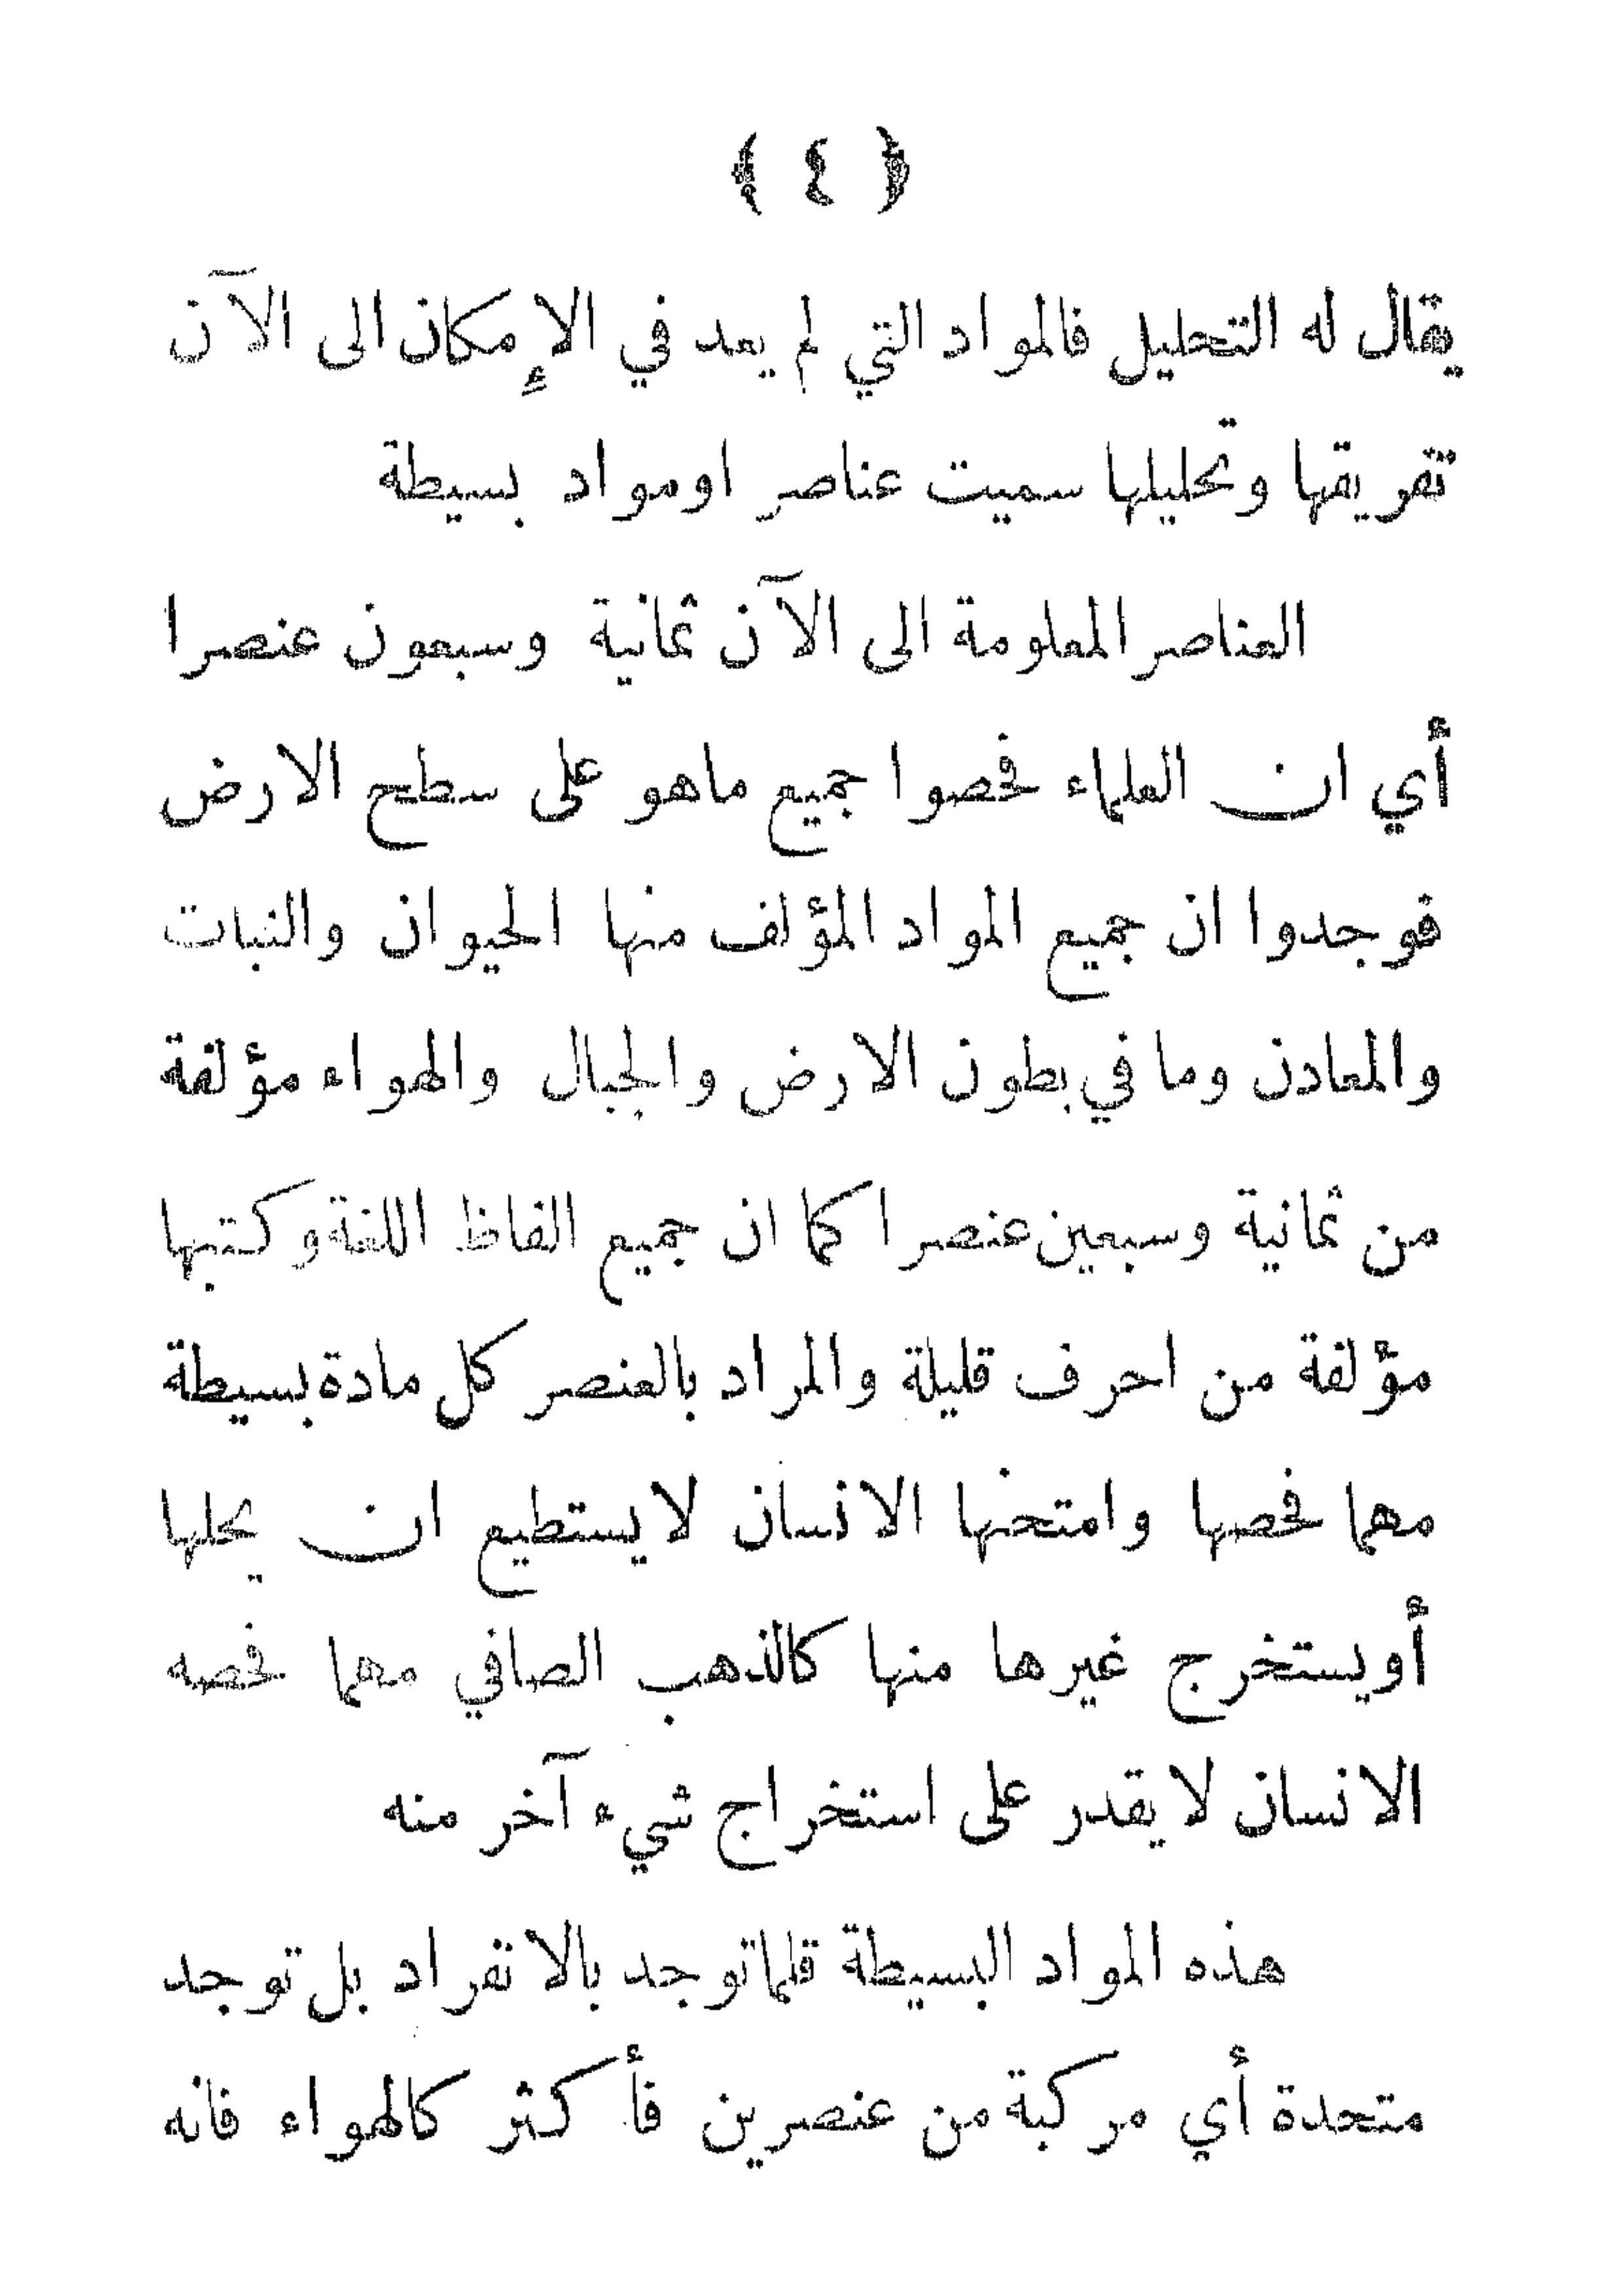 ﴿ ٤ ﴾
يقال له التحليل فالمواد التي لم يعد في الإمكان الى الآن
تفريقها وتحليلها سميت عناصر او مواد بسيطة
العناصر المعلومة الى الآن ثمانية وسبعون عنصرا
أي ان العلماء فحصوا جميع ماهو على سطح الارض
فوجدوا ان جميع المواد المؤلف منها الحيوان والنبات
والمعادن وما في بطون الارض والجبال والهواء مؤلفة
من ثمانية وسبعين عنصرا كما ان جميع الفاظ اللغة وكتبها
مؤلفة من احرف قليلة والمراد بالعنصر كل مادة بسيطة
مهما فحصها وامتحنها الانسان لا يستطيع ان يحلها
أو يستخرج غيرها منها كالذهب الصافي مهما فحصه
الانسان لا يقدر على استخراج شيء آخر منه
هذه المواد البسيطة قلما توجد بالانفراد بل توجد
متحدة أي مركبة من عنصرين فأكثر كالهواء فانه